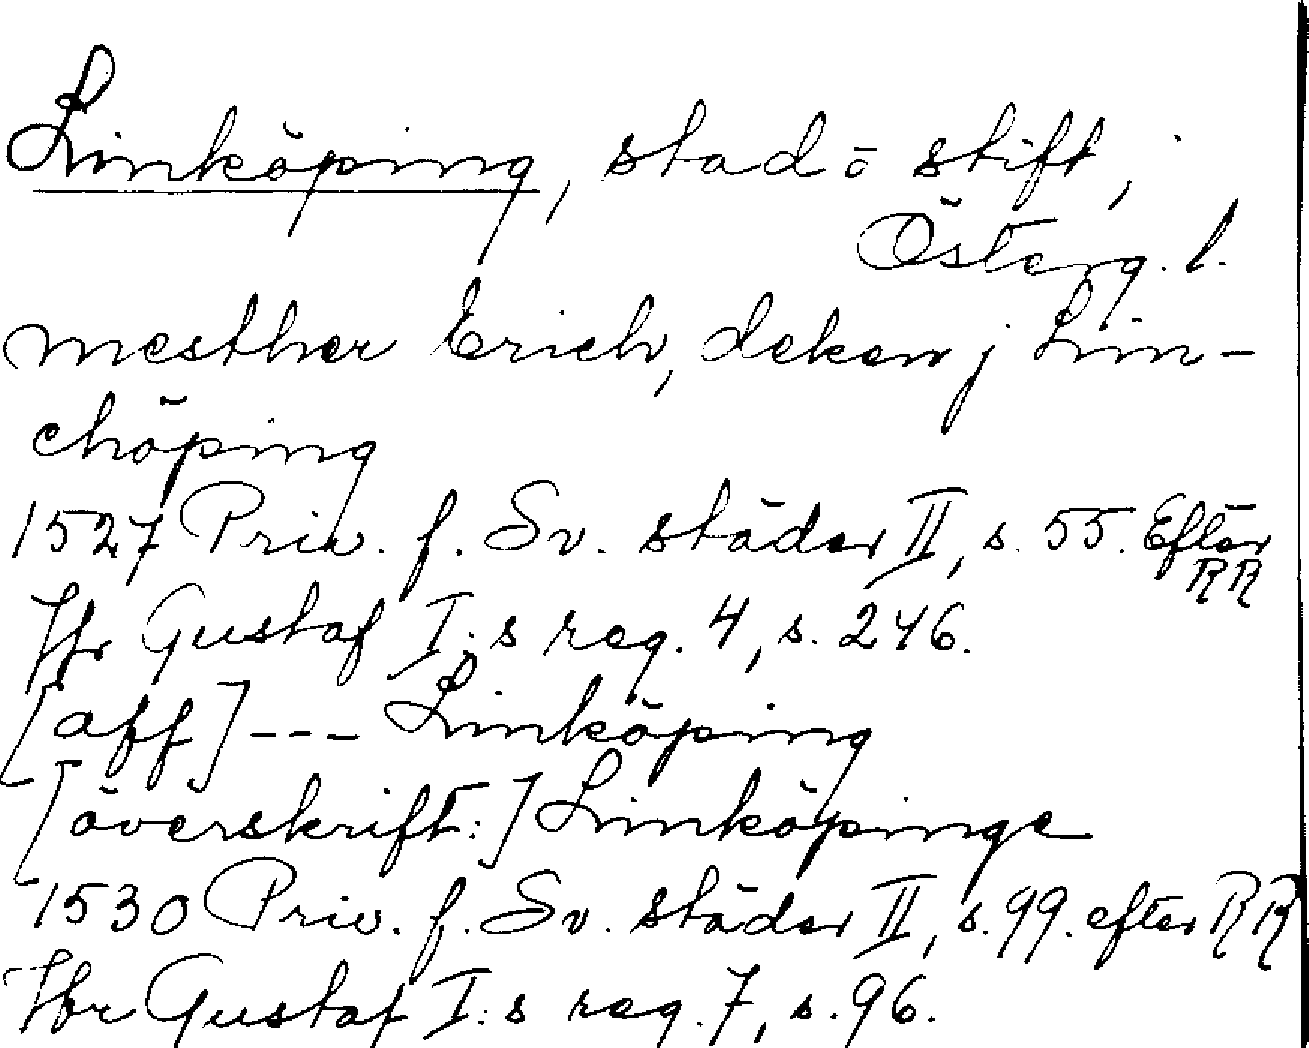 Linköping, stad o stift,
Österg. l.
mesther Erich, deken j Lin-
chöping
1527 Priv. f. Sv. städer II, s. 55. Efter
RR
Jfr Gustaf I:s reg. 4, s. 246.
[aff] --- Linköping
[överskrift:] Linköpinge
1530 Priv. f. Sv. städer II, s. 99. efter RR
Jfr Gustaf I:s reg. 7, s. 96.